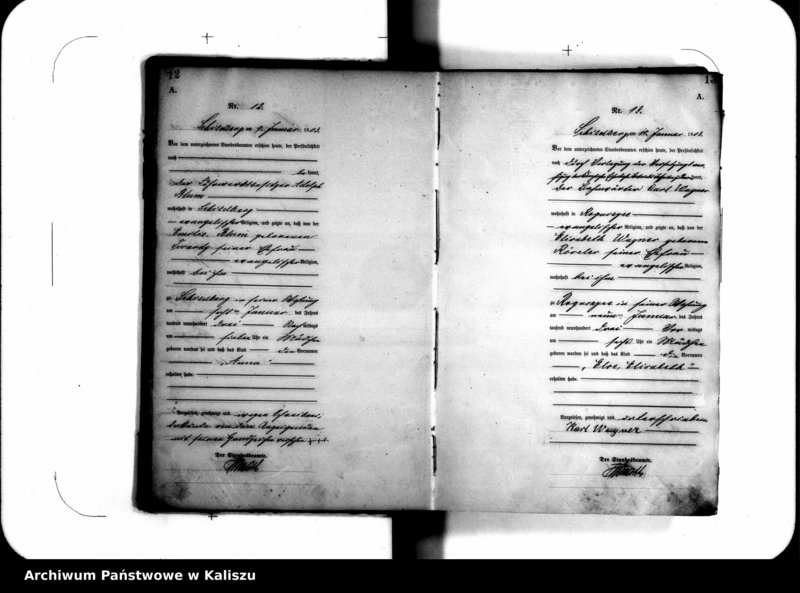 12
A.
Nr. 12.
Schildberg am 9. Januar 1903.
Vor dem unterzeichneten Standesbeamten erschien heute, der Persönlichkeit
nach
be kannt,
der Adolph
Blum
wohnhaft in Schildberg
evangelischer Religion, und zeigte an, daß von der
Emilie Blum geborenen
seiner Ehefrau
evangelischer Religion,
wohnhaft bei ihm
zu Schildberg in seiner Wohnung
am Januar des Jahres
tausend neunhundert drei Nachmittags
um sieben Uhr ein Mädchen
geboren worden sei und daß das Kind den Vornamen
„Anna“
erhalten habe.
Vorgelesen, genehmigt und wegen Schreibens-
unkunde von dem Anzeigenden
mit seinem Handzeichen versehen +++
Der Standesbeamte.
13
A.
Nr. 13.
Schildberg am Januar 1903.
Vor dem unterzeichneten Standesbeamten erschien heute, der Persönlichkeit
nach durch Vorlegung der
kannt,
der Bahnwärter Karl Wagner
wohnhaft in
evangelischer Religion, und zeigte an, daß von der
Elisabeth Wagner geborenen
seiner Ehefrau
evangelischer Religion,
wohnhaft bei ihm
zu in seiner Wohnung
am neunten Januar des Jahres
tausend neunhundert drei Vor mittags
um sechs Uhr ein Mädchen
geboren worden sei und daß das Kind die Vornamen
„Else, Elisabeth“
erhalten habe.
Vorgelesen, genehmigt und unterschrieben
Karl Wagner
Der Standesbeamte.
Archiwum Państwowe w Kaliszu